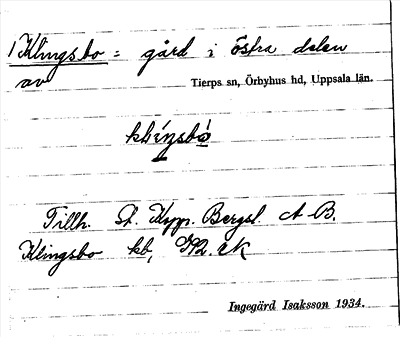 1 Klingsbo = gård i östra delen
av Tierps sn, Örbyhus hd, Uppsala län.
klíŋsbò
Tillh. St. Kopp. Bergsl. A. B.
Klingsbo kb,
Ingegärd Isaksson 1934.